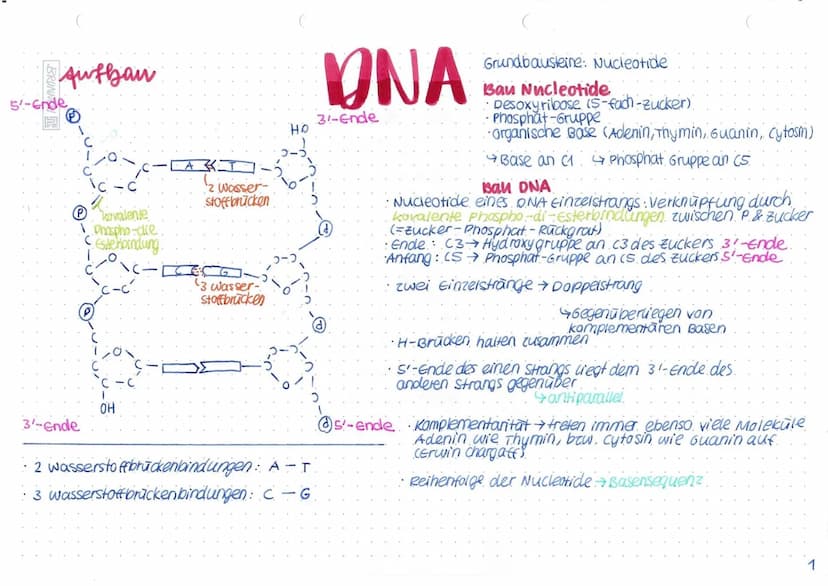 Aufbau
DNA
BRUNNEN
5'-Ende
P
3'-Ende
HO
C
O
C
C
C - C
A
T
2 Wasser-
stoffbrücken
P
kovalente
Phospho-die
Esterbindung
P
C
O
C
C
C - C
C
G
3 Wasser-
stoffbrücken
P
P
C
O
C
C
C - C
OH
3'-Ende
P 5'-Ende
· 2 Wasserstoffbrückenbindungen: A - T
· 3 Wasserstoffbrückenbindungen: C - G
Grundbausteine: Nucleotide
Bau Nucleotide
· Desoxyribose (5-fach-Zucker)
· Phosphat-Gruppe
· organische Base (Adenin, Thymin, Guanin, Cytosin)
↳ Base an C1 ↳ Phosphat Gruppe an C5
Bau DNA
· Nucleotide eines DNA Einzelstrangs: Verknüpfung durch
kovalente Phospho-di-Esterbindungen zwischen P & Zucker
(=Zucker-Phosphat-Rückgrat)
· Ende: C3 → Hydroxygruppe an C3 des Zuckers 3'-Ende
· Anfang: C5 → Phosphat-Gruppe an C5 des Zuckers 5'-Ende
· zwei Einzelstränge → Doppelstrang
↳ Gegenüberliegen von
komplementären Basen
· H-Brücken halten zusammen
· 5'-Ende des einen Strangs liegt dem 3'-Ende des
anderen Strangs gegenüber
↳ antiparallel
· Komplementarität → treten immer ebenso viele Moleküle
Adenin wie Thymin, bzw. Cytosin wie Guanin auf
(Erwin Chargaff)
· Reihenfolge der Nucleotide → Basensequenz
1